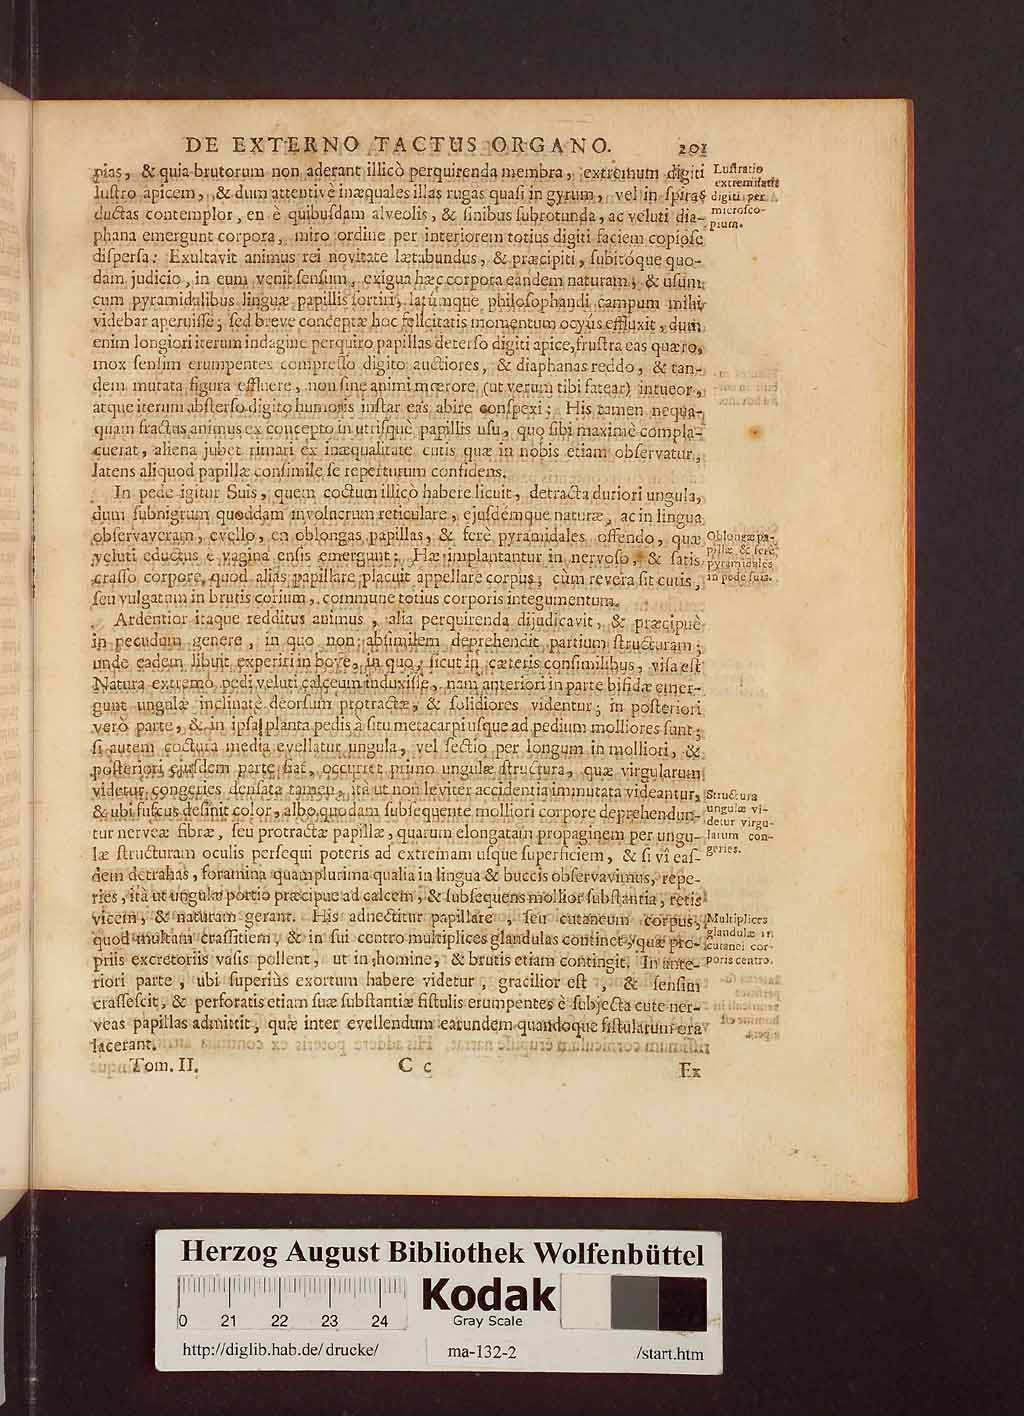 DE EXTERNO TACTUS ORGANO. 201
pias, & quia brutorum non aderant illicò perquirenda membra, extremum digiti
lustro apicem, & dum attentivè inæquales illas rugas quasi in gyrum, vel in spiras
ductas contemplor, en è quibusdam alveolis, & sinibus subrotunda, ac veluti dia-
phana emergunt corpora, miro ordine per interiorem totius digiti faciem copiosè
dispersa: Exultavit animus rei novitate lætabundus, & præcipiti, subitóque quo-
dam judicio, in eum venit sensum, exigua hæc corpora eandem naturam, & usum
cum pyramidalibus linguæ papillis sortiri, latúmque philosophandi campum mihi
videbar aperuisse; sed breve conceptæ hoc felicitatis momentum ocyus effluxit, dum
enim longiori iterum indagine perquiro papillas deterso digiti apice, frustra eas quæro,
mox sensim erumpentes compresso digito auctiores, & diaphanas reddo, & tan-
dem mutata figura effluere, non sine animi mœrore, (ut verum tibi fatear) intueor,
atque iterum absterso digito humoris instar eas abire conspexi; His tamen nequa-
quam fractus animus ex concepto in utrisque papillis usu, quo sibi maximè compla-
cuerat, aliena jubet rimari ex inæqualitate cutis quæ in nobis etiam observatur,
latens aliquod papillæ consimile se reperturum confidens.
In pede igitur Suis, quem coctum illicò habere licuit, detracta duriori ungula,
dum subnigrum quoddam involucrum reticulare, ejusdémque naturæ, ac in lingua
observaveram, evello, en oblongas papillas, & ferè pyramidales offendo, quæ
veluti eductus è vagina ensis emergunt; Hæ implantantur in nervoso, & satis
crasso corpore, quod aliàs papillare placuit appellare corpus, cùm revera sit cutis,
seu vulgatum in brutis corium, commune totius corporis integumentum.
Ardentior itaque redditus animus, alia perquirenda dijudicavit, & præcipuè
in pecudum genere, in quo non absimilem deprehendit partium structuram;
unde eadem libuit experiri in bove, in quo, sicut in cæteris consimilibus, visa est
Natura extremo pedi veluti calceum induxisse, nam anteriori in parte bifidæ emer-
gunt ungulæ inclinatè deorsum protractæ, & solidiores videntur; in posteriori
verò parte, & in ipsa planta pedis à situ metacarpi usque ad pedium molliores sunt;
si autem coctura media evellatur ungula, vel sectio per longum in molliori, &
posteriori ejusdem parte fiat, occurret primo ungulæ structura, quæ virgularum
videtur congeries, densata tamen, ita ut non leviter accidentia immutata videantur,
& ubi fuscus desinit color, albo quodam subsequente molliori corpore deprehendun-
tur nerveæ fibræ, seu protractæ papillæ, quarum elongatam propaginem per ungu-
læ structuram oculis persequi poteris ad extremam usque superficiem, & si vî eas-
dem detrahas, foramina quamplurima qualia in lingua & buccis observavimus, repe-
ries, ità ut ungulæ portio præcipue ad calcem, & subsequens mollior substantia, retis
vicem, & naturam gerant. His adnectitur papillare, seu cutaneum corpus,
quod multam crassitiem, & in sui centro multiplices glandulas continet, quæ pro-
priis excretoriis vasis pollent, ut in homine, & brutis etiam contingit. In ante-
riori parte, ubi superiùs exortum habere videtur, gracilior est, & sensim
crassescit, & perforatis etiam suæ substantiæ fistulis erumpentes è subjecta cute ner-
veas papillas admittit, quæ inter evellendum earundem quandoque fistularum ora
lacerant.
Tom. II. C c Ex
Lustratio
extremitatis
digiti per
microsco-
pium.
Oblongæ pa-
pillæ & ferè
pyramidales
in pede suis.
Structura
ungulæ vi-
detur virgu-
larum con-
geries.
Multiplices
glandulæ in
cutanei cor-
poris centro.
Herzog August Bibliothek Wolfenbüttel
0 21 22 23 24
Kodak
Gray Scale
http://diglib.hab.de/drucke/ ma-132-2 /start.htm